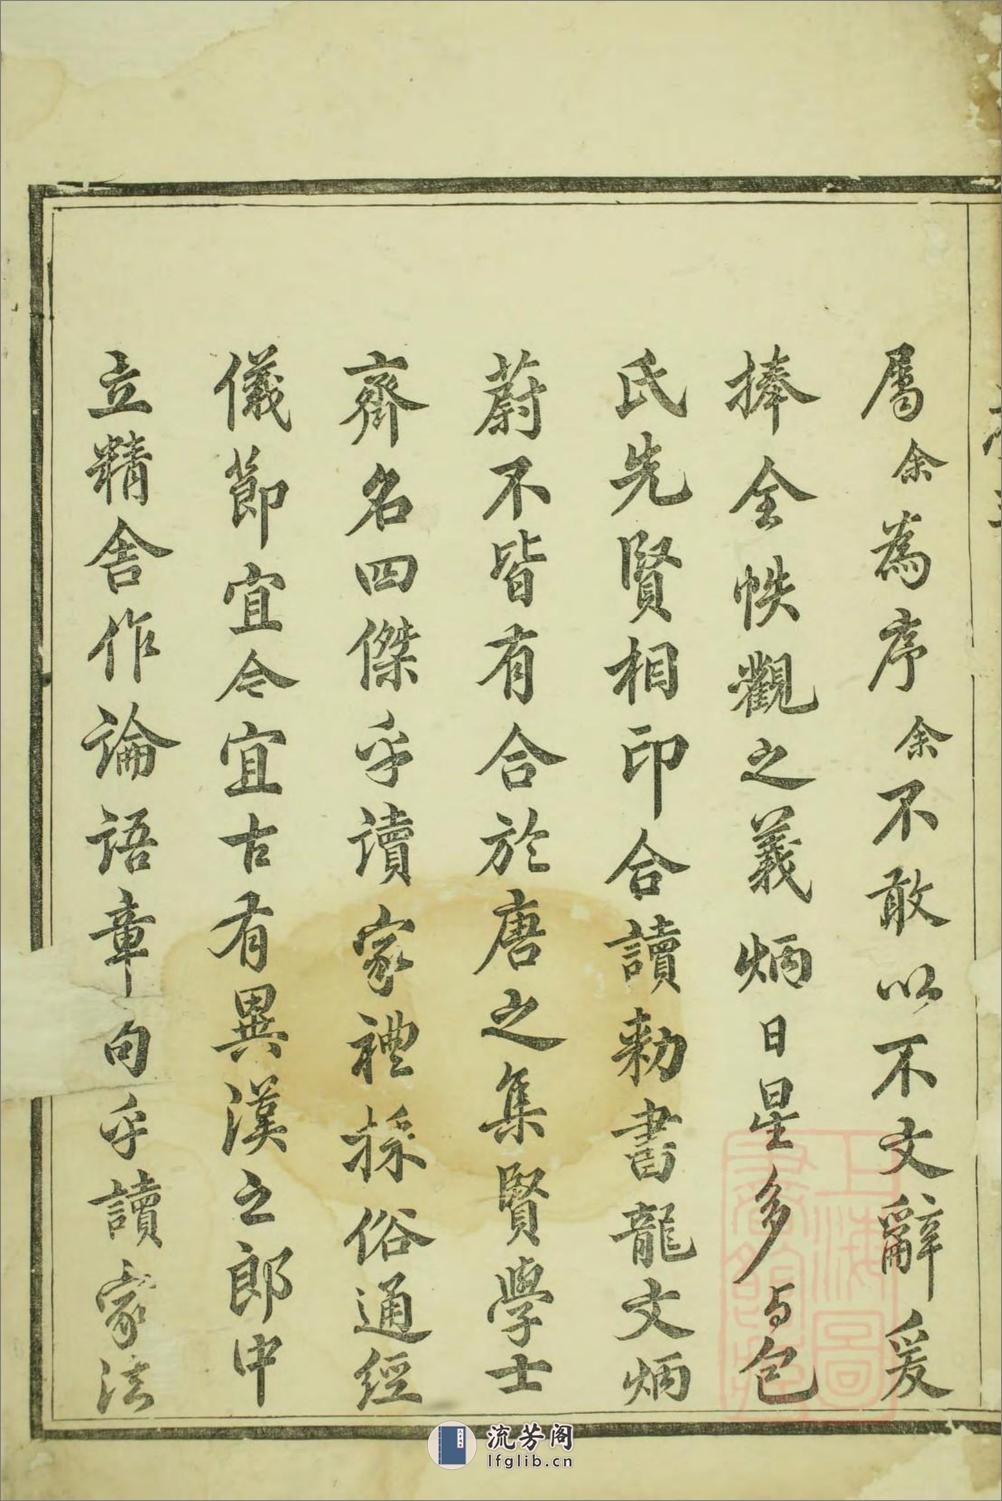 屬余為序余不敢以不文辭爰
捧全帙觀之義炳日星多与包
氏先賢相印合讀勑書龍文炳
蔚不皆有合於唐之集賢學士
齊名四傑乎讀家禮採俗通經
儀節宜令宜古有異漢之郎中
立精舍作論語章句乎讀家法
上海圖書館藏
流芳阁
lfglib.cn